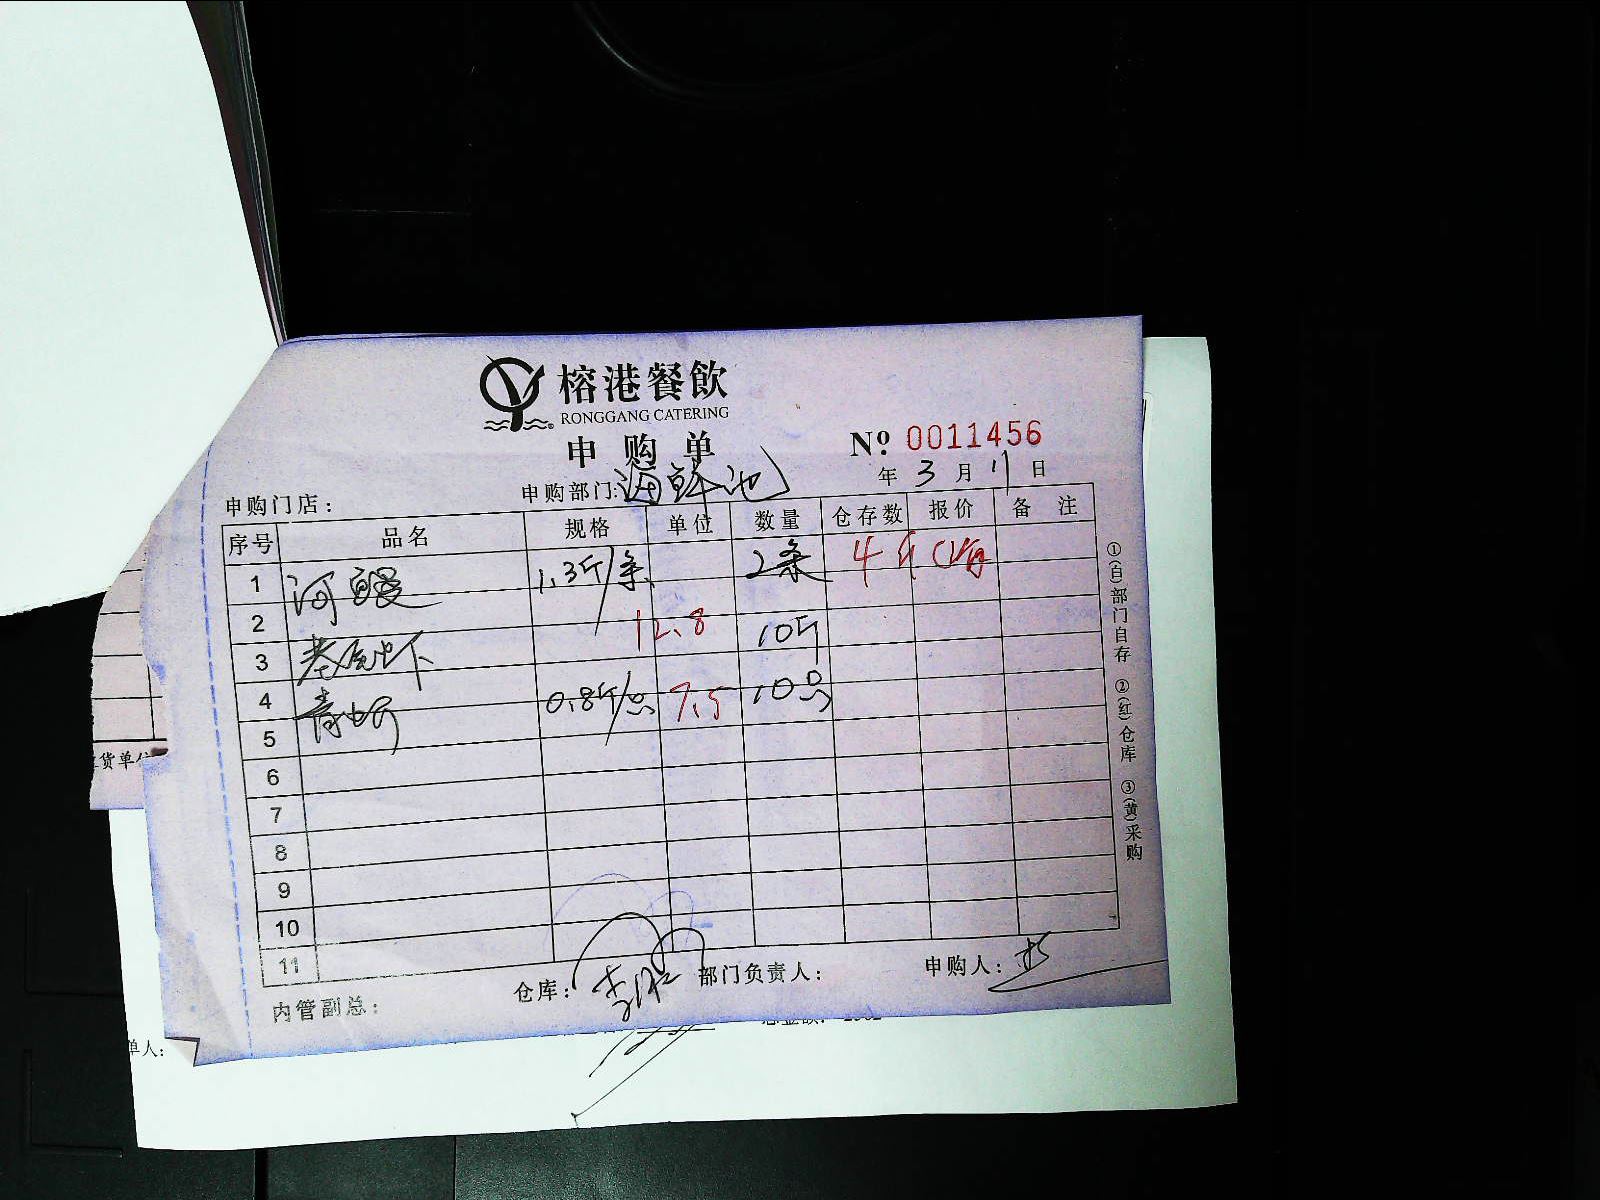 榕港餐飲
RONGGANG CATERING
申购单
Nº 0011456
年 3 月 11 日
申购门店： 申购部门：海鲜池
序号 品名 规格 单位 数量 仓存数 报价 备注
1 河鳗 1.3斤/条 2条 4斤
2 12.8 10斤
3 基尾虾
4 青虫 0.8斤/只 7.5 10只
5
6
7
8
9
10
11
①(白)部门自存 ②(红)仓库 ③(黄)采购
内管副总： 仓库： 部门负责人： 申购人：
货单
单人：